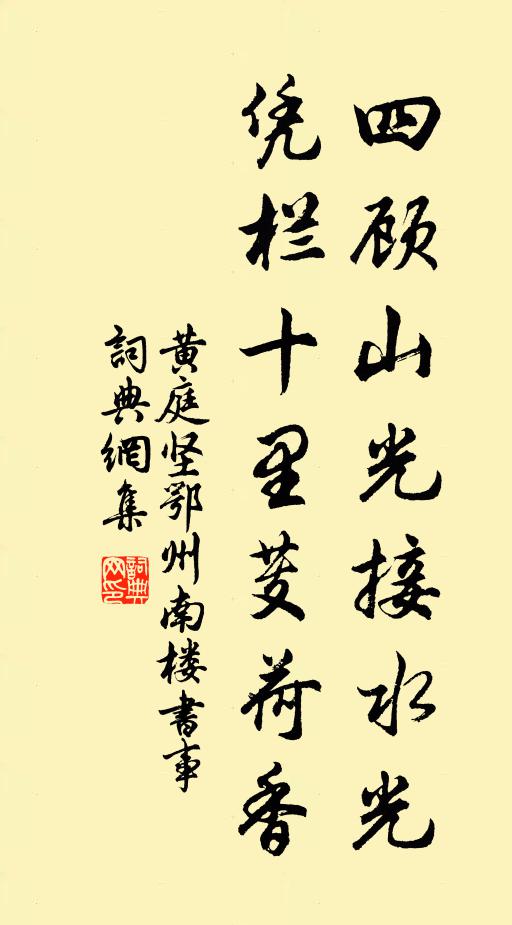 四顾山光接水光
凭栏十里芰荷香
黄庭坚鄂州南楼书事
詞典網集
詞典网印